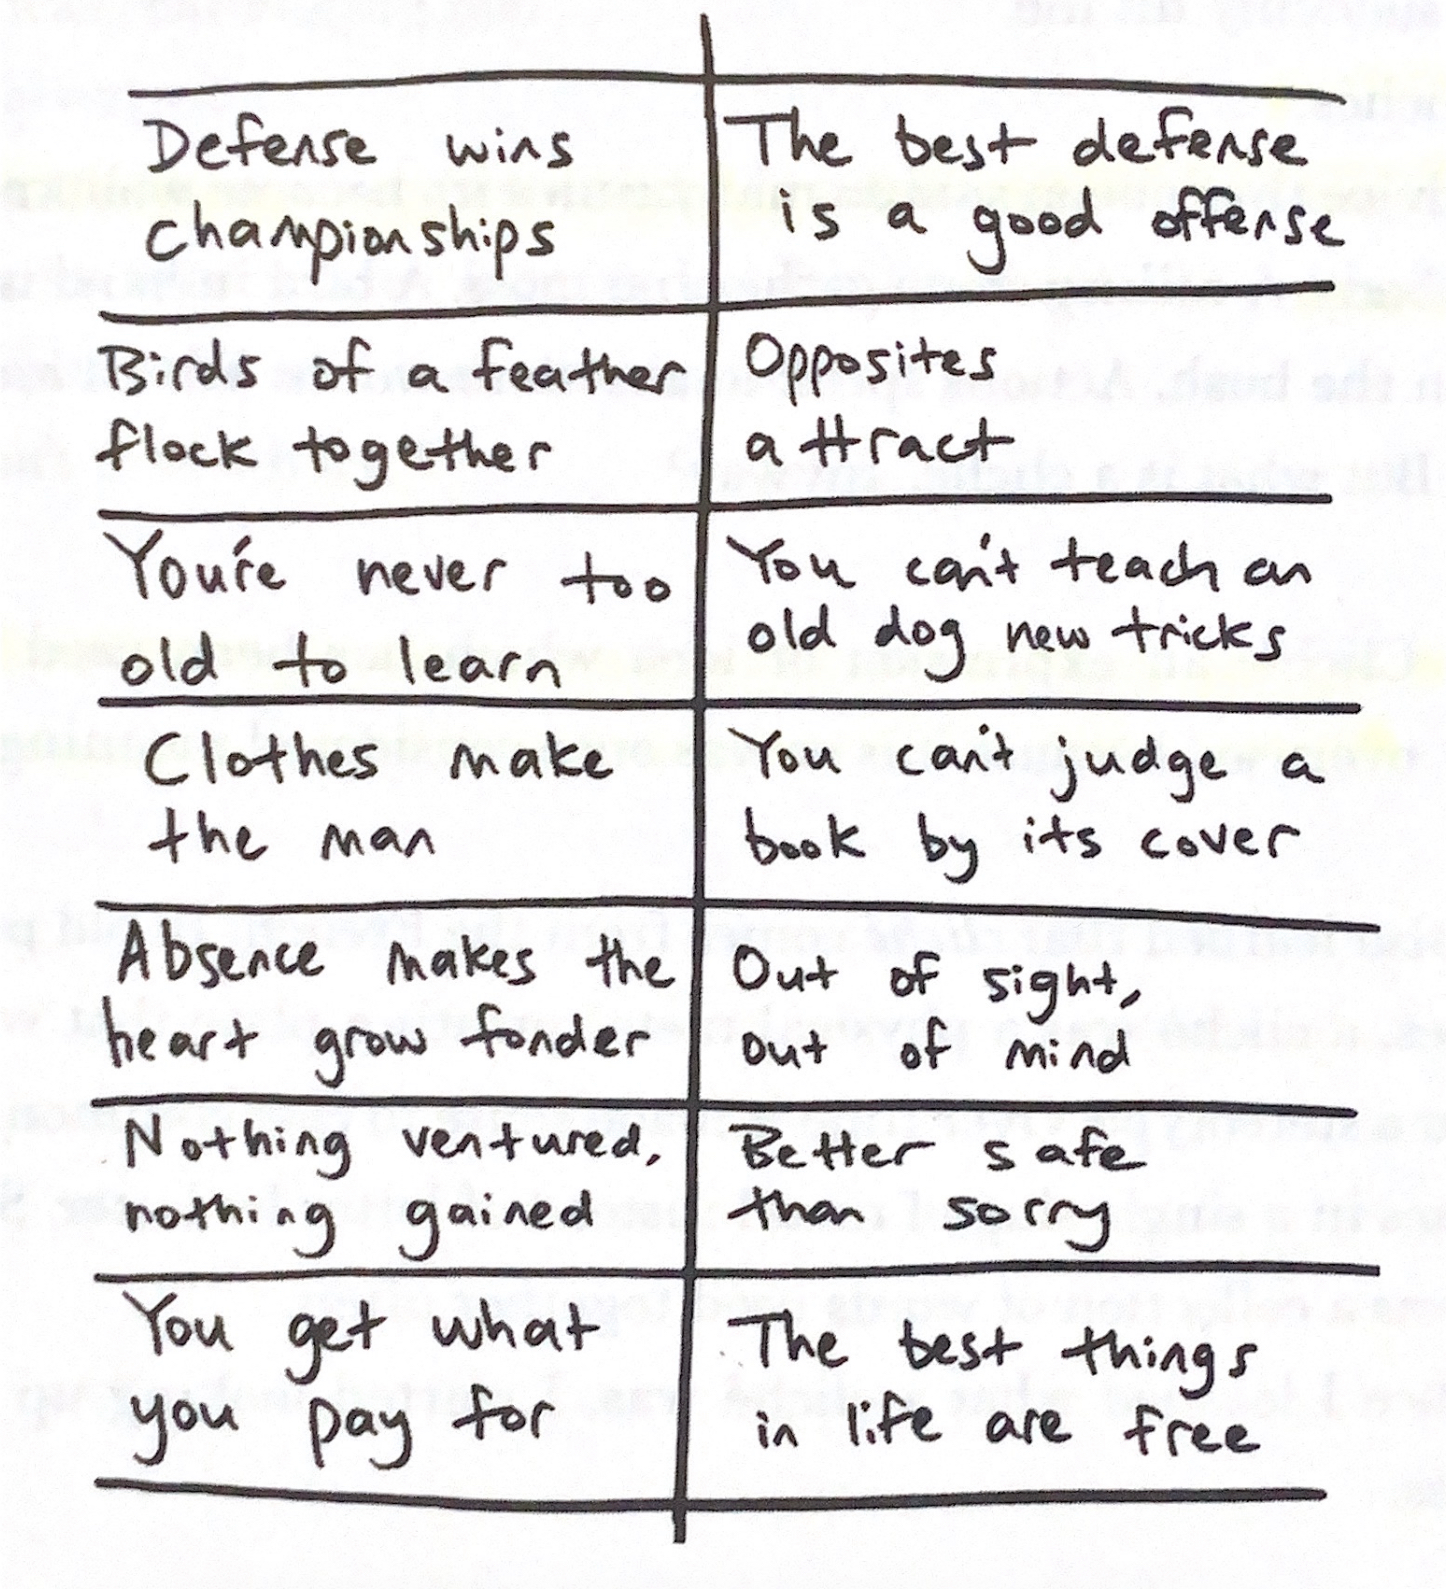 Defense wins
championships
The best defense
is a good offense
Birds of a feather
flock together
Opposites
attract
You're never too
old to learn
You can't teach an
old dog new tricks
Clothes make
the man
You can't judge a
book by its cover
Absence makes the
heart grow fonder
Out of sight,
out of mind
Nothing ventured,
nothing gained
Better safe
than sorry
You get what
you pay for
The best things
in life are free